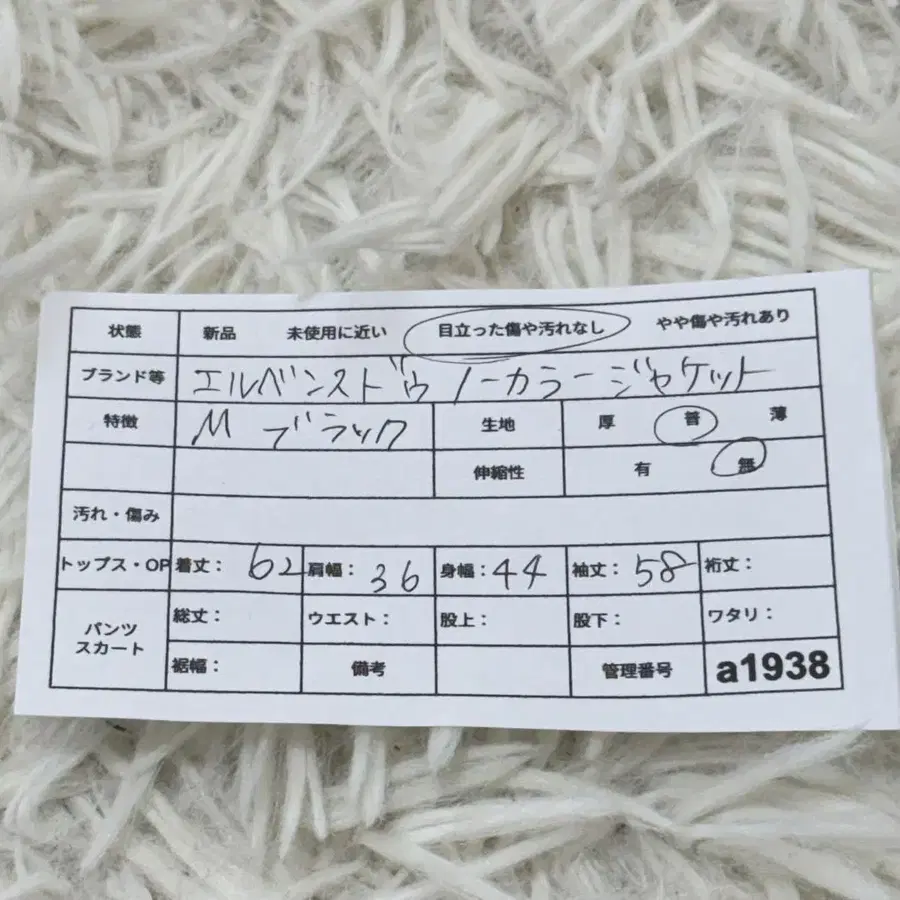 状態 新品 未使用に近い 目立った傷や汚れなし やや傷や汚れあり
ブランド等 エルベンスドゥ ノーカラージャケット
特徴 M ブラック 生地 厚 普 薄
伸縮性 有 無
汚れ・傷み
トップス・OP 着丈: 62 肩幅: 36 身幅: 44 袖丈: 58 裄丈:
パンツ スカート 総丈: ウエスト: 股上: 股下: ワタリ:
裾幅: 備考 管理番号 a1938